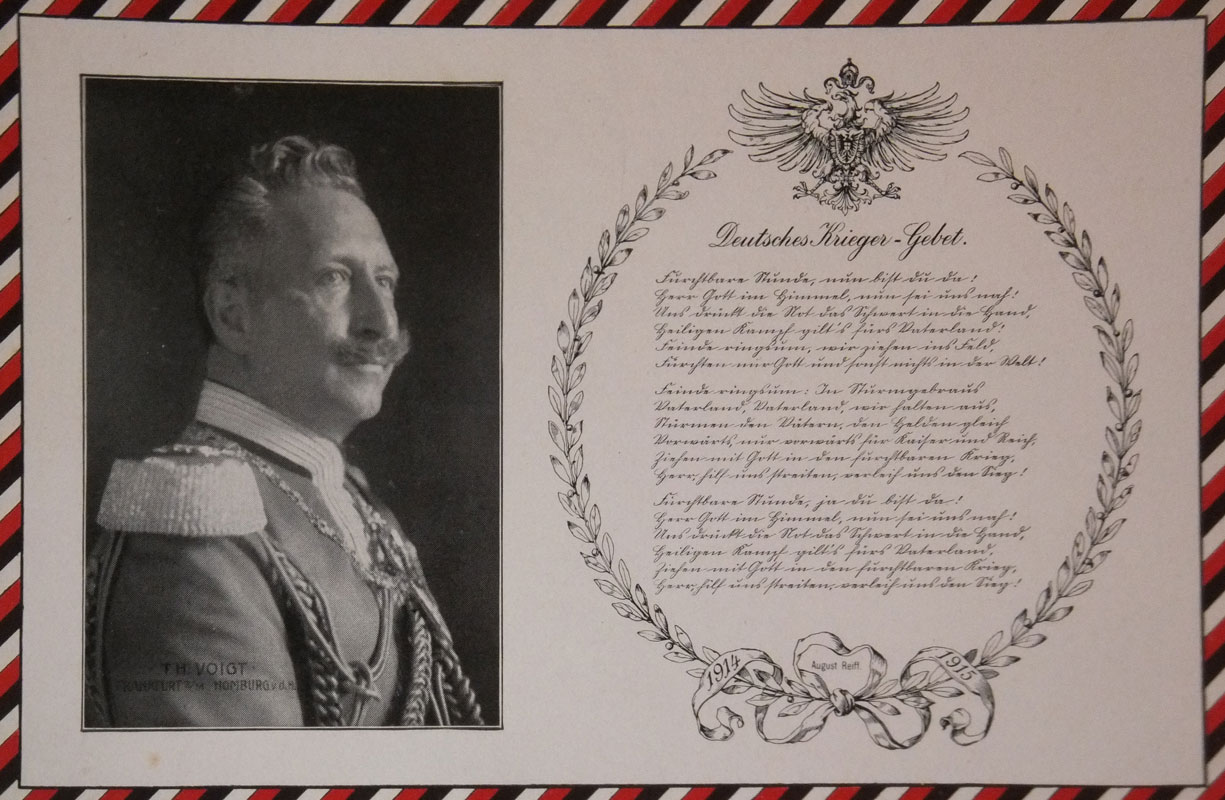 TH. VOIGT
FRANKFURT a/M HOMBURG v.d.H.
Deutsches Krieger-Gebet.
Furchtbare Stunde, nun bist du da!
Herr Gott im Himmel, nun sei uns nah!
Uns drückt die Not das Schwert in die Hand,
Heiligen Kampf gilt's fürs Vaterland!
Feinde ringsum, wir ziehen ins Feld,
Fürchten nur Gott und sonst nichts in der Welt!
Feinde ringsum: In Sturmgebraus
Vaterland, Vaterland, wir halten aus,
Stürmen den Vätern, den Helden gleich
Vorwärts, nur vorwärts für Kaiser und Reich,
Ziehen mit Gott in den furchtbaren Krieg,
Herr, hilf uns streiten, verleih uns den Sieg!
Furchtbare Stunde, ja du bist da!
Herr Gott im Himmel, nun sei uns nah!
Uns drückt die Not das Schwert in die Hand,
Heiligen Kampf gilt's fürs Vaterland,
Ziehen mit Gott in den furchtbaren Krieg,
Herr, hilf uns streiten, verleih uns den Sieg!
1914
August Reiff
1915